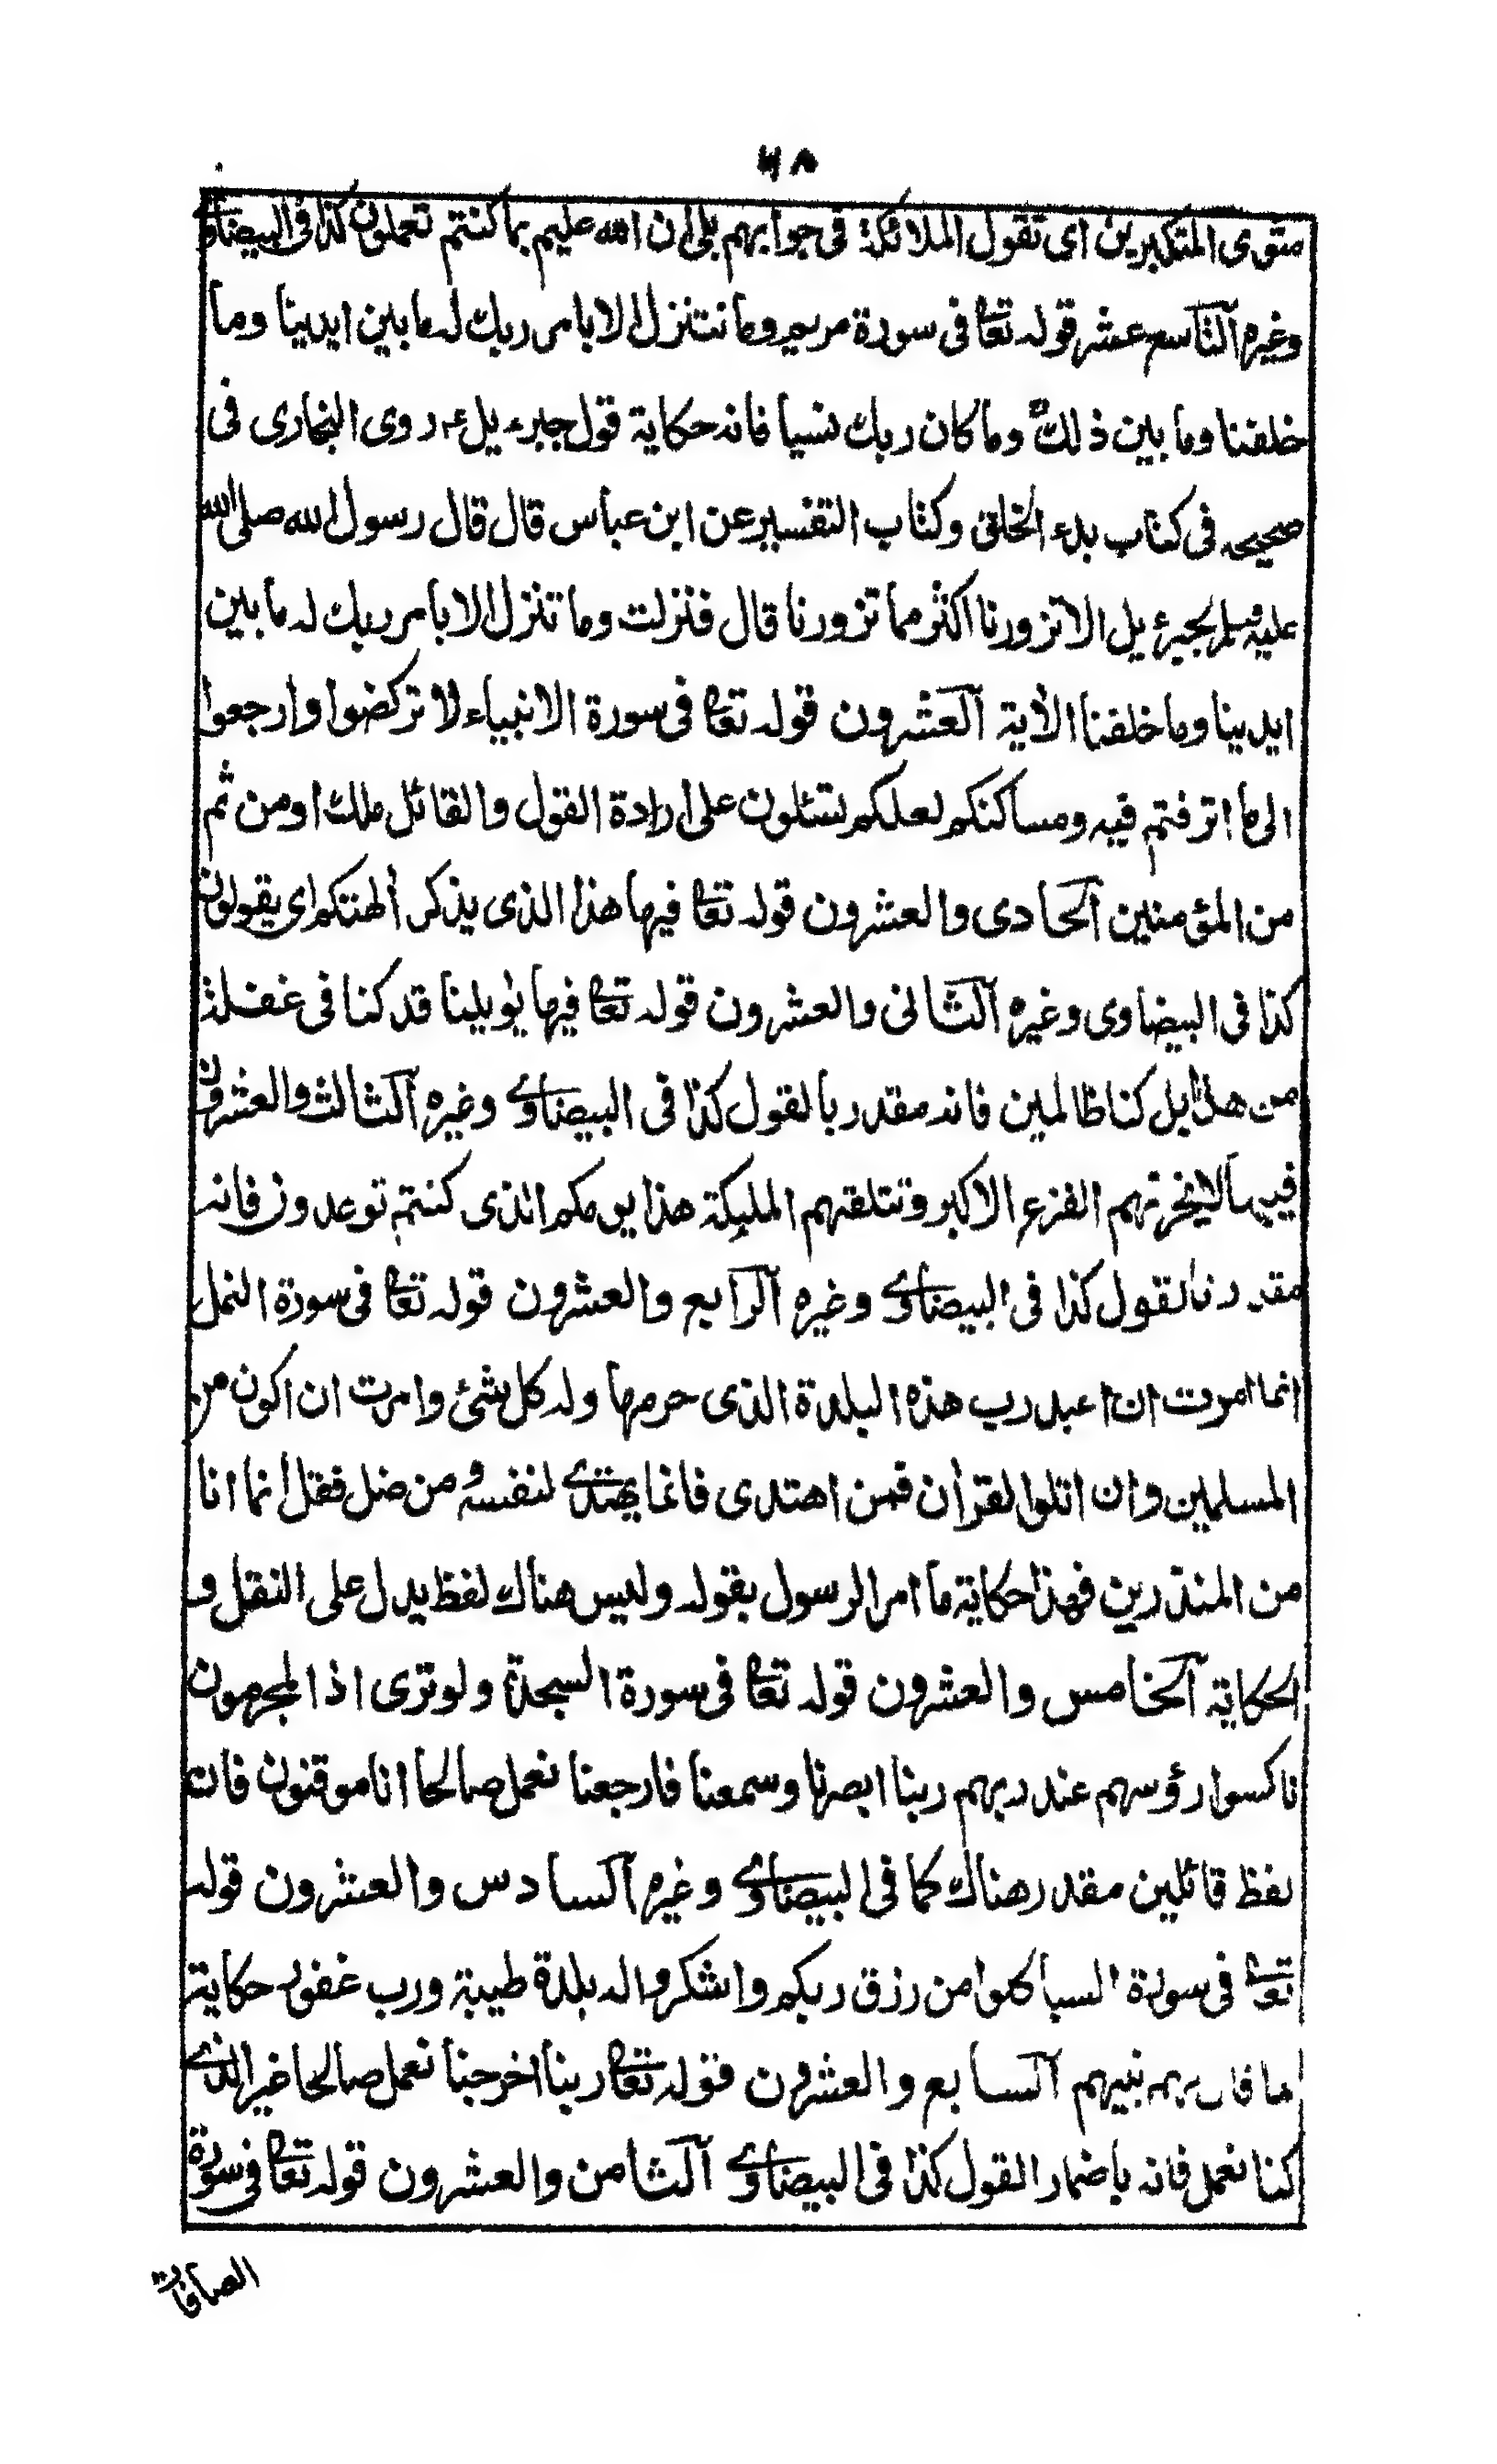 ٦٨
مثوى المتكبرين اى تقول الملائكة فى جوابهم بلى ان الله عليم بما كنتم تعملون كذا فى البيضاوى
وغيره التاسع عشر قوله تعا فى سورة مريم وما نتنزل الا بامر ربك له ما بين ايدينا وما
خلفنا وما بين ذلك وما كان ربك نسيا فانه حكاية قول جبرءيل ء روى البخارى فى
صحيحه فى كتاب بدء الخلق وكتاب التفسير عن ابن عباس قال قال رسول الله صلى الله
عليه وسلم لجبرئيل الا تزورنا اكثر مما تزورنا قال فنزلت وما تنزل الا بامر ربك له ما بين
ايدينا وما خلفنا الاية العشرون قوله تعا فى سورة الانبياء لا تركضوا وارجعوا
الى ما اترفتم فيه ومساكنكم لعلكم تسئلون على ارادة القول والقائل ملك او من ثم
من المؤمنين الحادى والعشرون قوله تعا فيها هذا الذى يذكر ألهتكم اى يقولون
كذا فى البيضاوى وغيره الثانى والعشرون قوله تعا فيها يويلنا قد كنا فى غفلة
من هذا بل كنا ظالمين فانه مقدر بالقول كذا فى البيضاوى وغيره الثالث والعشرون
فيها لا يحزنهم الفزع الاكبر وتتلقهم الملئكة هذا يومكم الذى كنتم توعدون فانه
مقدر بالقول كذا فى البيضاوى وغيره الرابع والعشرون قوله تعا فى سورة النمل
انما امرت ان اعبد رب هذه البلدة الذى حرمها وله كل شئ وامرت ان اكون من
المسلمين وان اتلوا القرأن فمن اهتدى فانما يهتدى لنفسه ومن ضل فقل انما انا
من المنذرين فهذا حكاية ما امر الرسول بقوله وليس هناك لفظ يدل على النقل و
الحكاية الخامس والعشرون قوله تعا فى سورة السجدة ولو ترى اذ المجرمون
ناكسوا رؤسهم عند ربهم ربنا ابصرنا وسمعنا فارجعنا نعمل صالحا انا موقنون فان
لفظ قائلين مقدر هناك كما فى البيضاوى وغيره السادس والعشرون قوله
تعا فى سورة السبا كلوا من رزق ربكم واشكروا له بلدة طيبة ورب غفور حكاية
ما قال لهم نبيهم السابع والعشرون قوله تعا ربنا اخرجنا نعمل صالحا غير الذى
كنا نعمل فانه باضمار القول كذا فى البيضاوى الثامن والعشرون قوله تعا فى سورة
الصافات